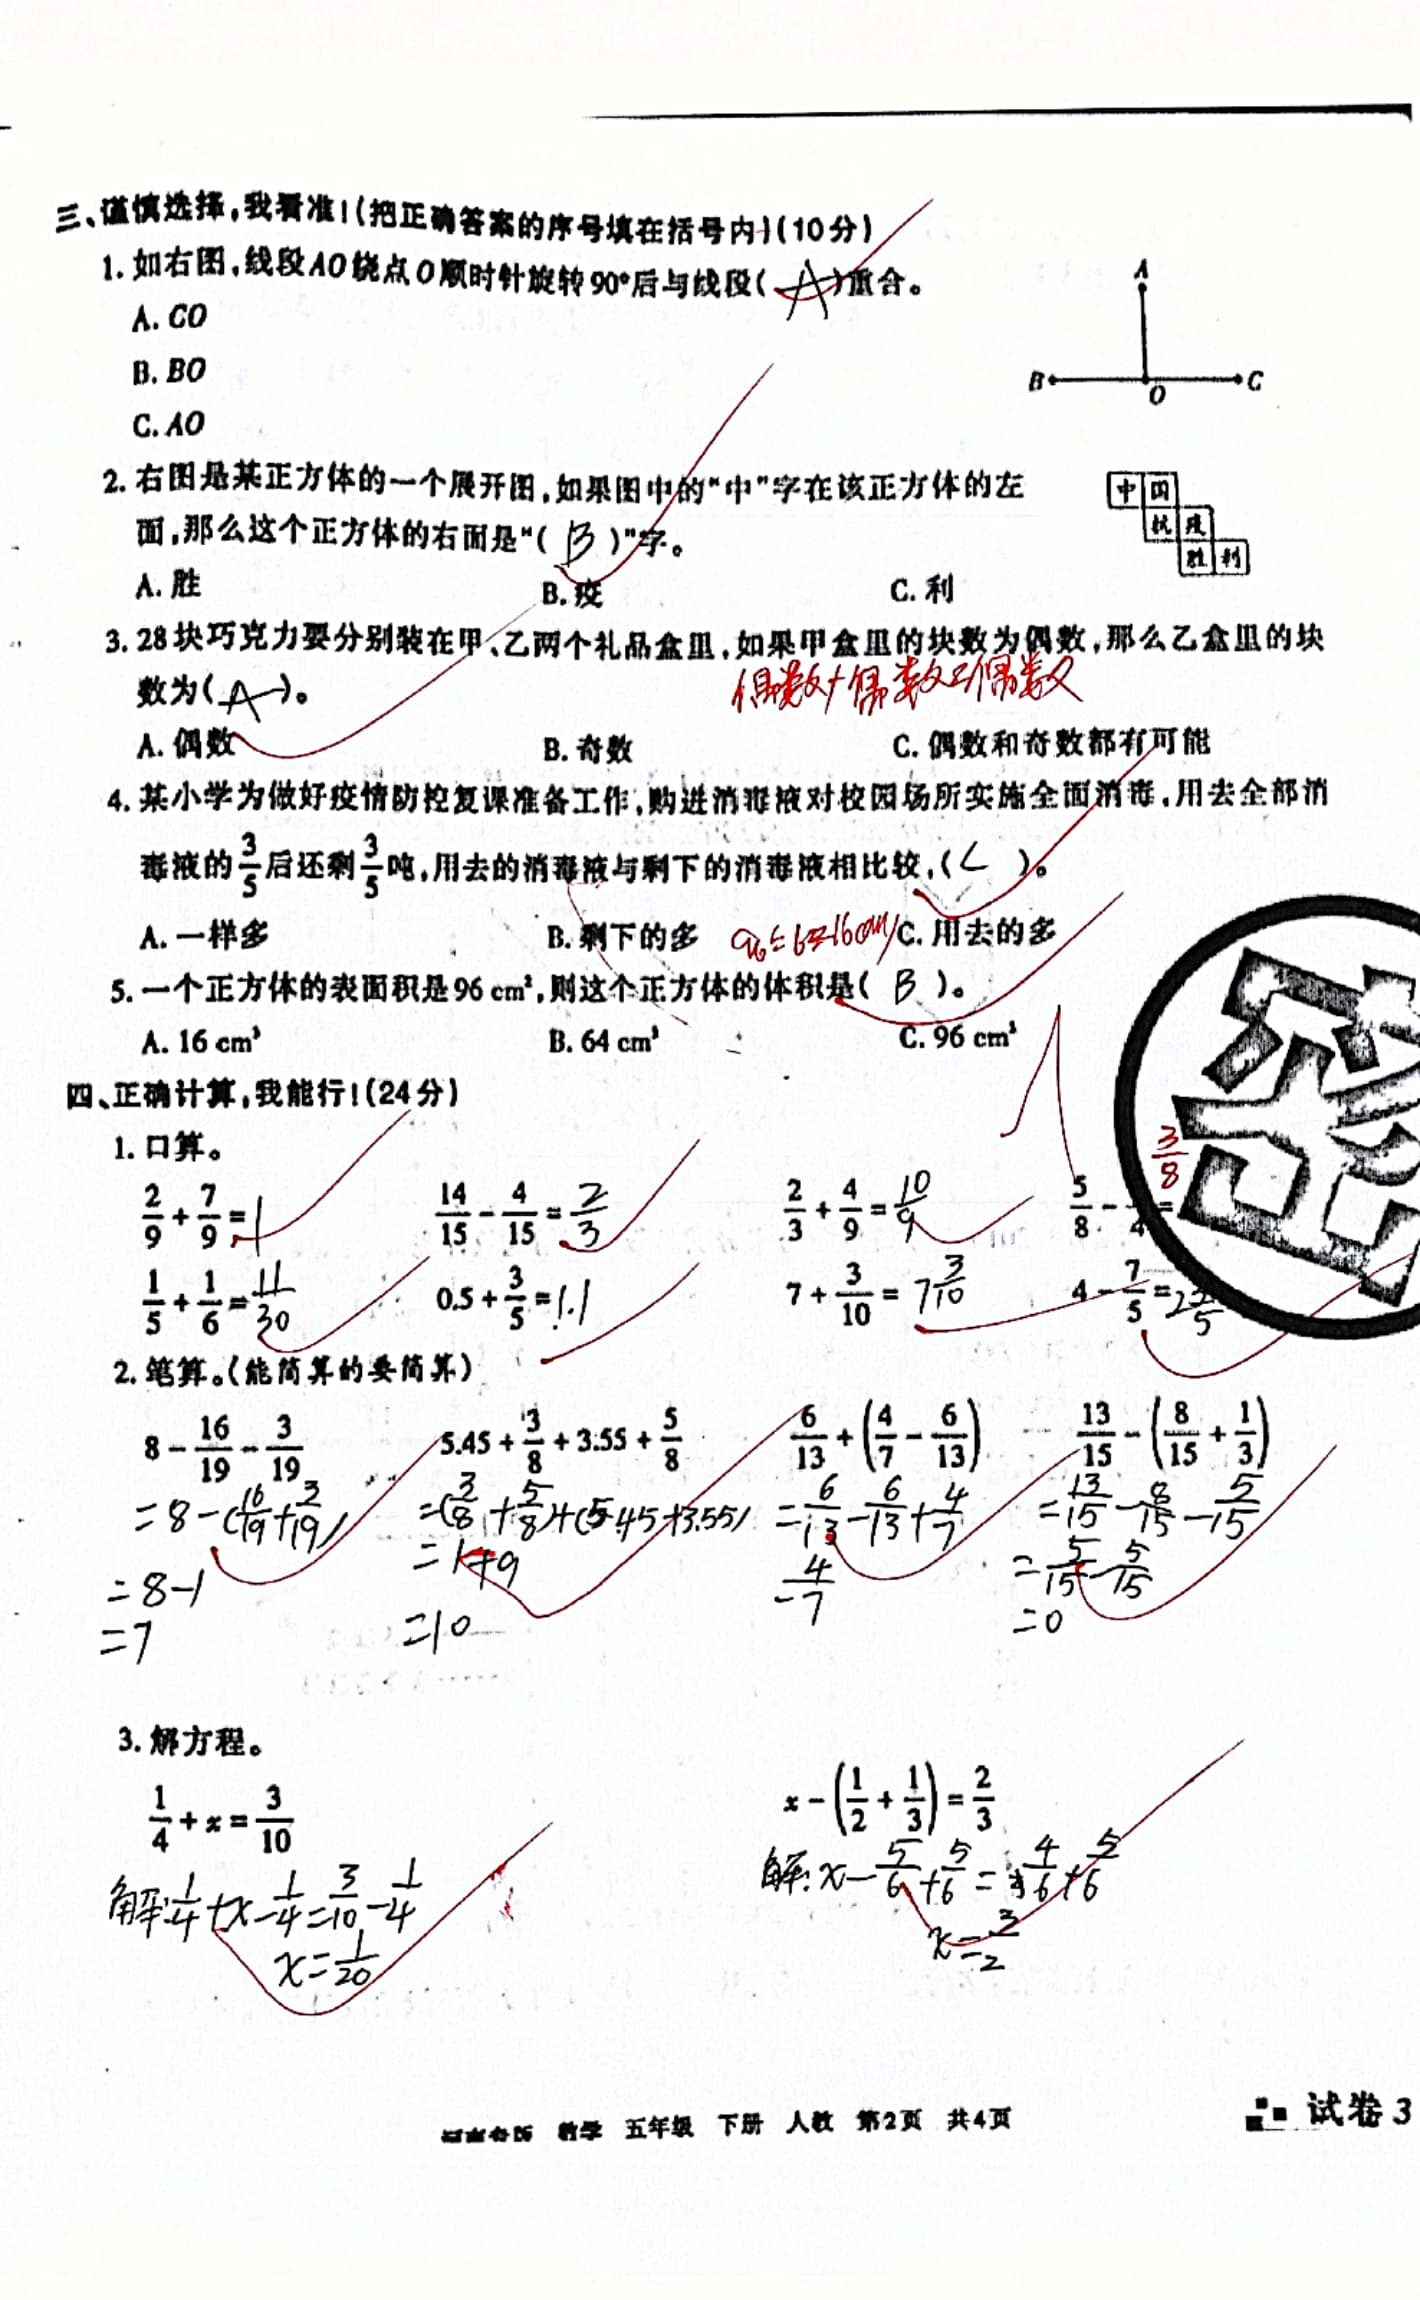 三、谨慎选择,我看准!(把正确答案的序号填在括号内)(10分)
1. 如右图,线段AO绕点O顺时针旋转90°后与线段( A )重合。
A. CO
B. BO
C. AO
A
B O C
2. 右图是某正方体的一个展开图,如果图中的“中”字在该正方体的左
面,那么这个正方体的右面是“( B )”字。
中 国
抗 疫
胜 利
A. 胜 B. 疫 C. 利
3. 28块巧克力要分别装在甲、乙两个礼品盒里,如果甲盒里的块数为偶数,那么乙盒里的块
数为( A )。
偶数+偶数=偶数
A. 偶数 B. 奇数 C. 偶数和奇数都有可能
4. 某小学为做好疫情防控复课准备工作,购进消毒液对校园场所实施全面消毒,用去全部消
毒液的3/5后还剩3/5吨,用去的消毒液与剩下的消毒液相比较,( C )。
A. 一样多 B. 剩下的多 C. 用去的多
96÷6=16cm
5. 一个正方体的表面积是96 cm²,则这个正方体的体积是( B )。
A. 16 cm³ B. 64 cm³ C. 96 cm³
四、正确计算,我能行!(24分)
1. 口算。
2/9 + 7/9 = 1 14/15 - 4/15 = 2/3 2/3 + 4/9 = 10/9 5/8 - /4 = 3/8
1/5 + 1/6 = 11/30 0.5 + 3/5 = 1.1 7 + 3/10 = 7 3/10 4 - 7/5 = 2 /5
2. 笔算。(能简算的要简算)
8 - 16/19 - 3/19 5.45 + 3/8 + 3.55 + 5/8 6/13 + (4/7 - 6/13) 13/15 - (8/15 + 1/3)
=8-(16/19+3/19) =(3/8+5/8)+(5.45+3.55) =6/13-6/13+4/7 =13/15-8/15-5/15
=8-1 =1+9 =4/7 =5/15-5/15
=7 =10 =0
3. 解方程。
1/4 + x = 3/10 x - (1/2 + 1/3) = 2/3
解:1/4+x-1/4=3/10-1/4 解:x-5/6+5/6=4/6+5/6
x=1/20 x=3/2
数学 五年级 下册 人教 第2页 共4页
试卷3